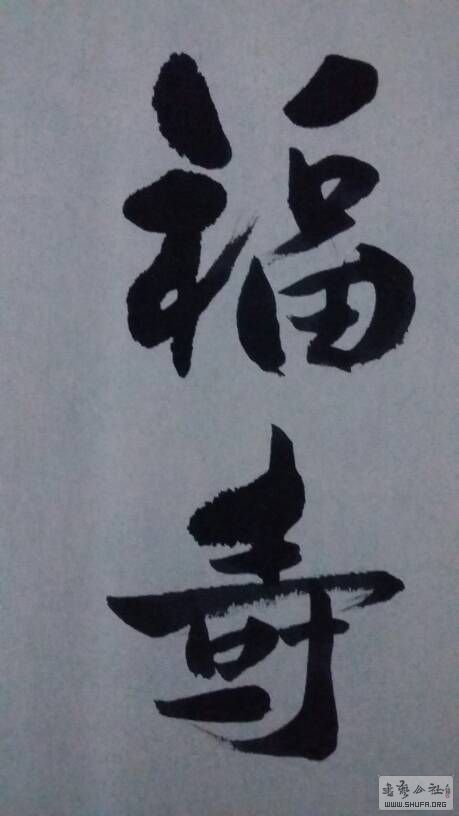 福
寿
書法公社
WWW.SHUFA.ORG